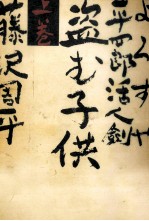 よろずや
平四郎活人剣
盗む子供
上巻
藤沢周平